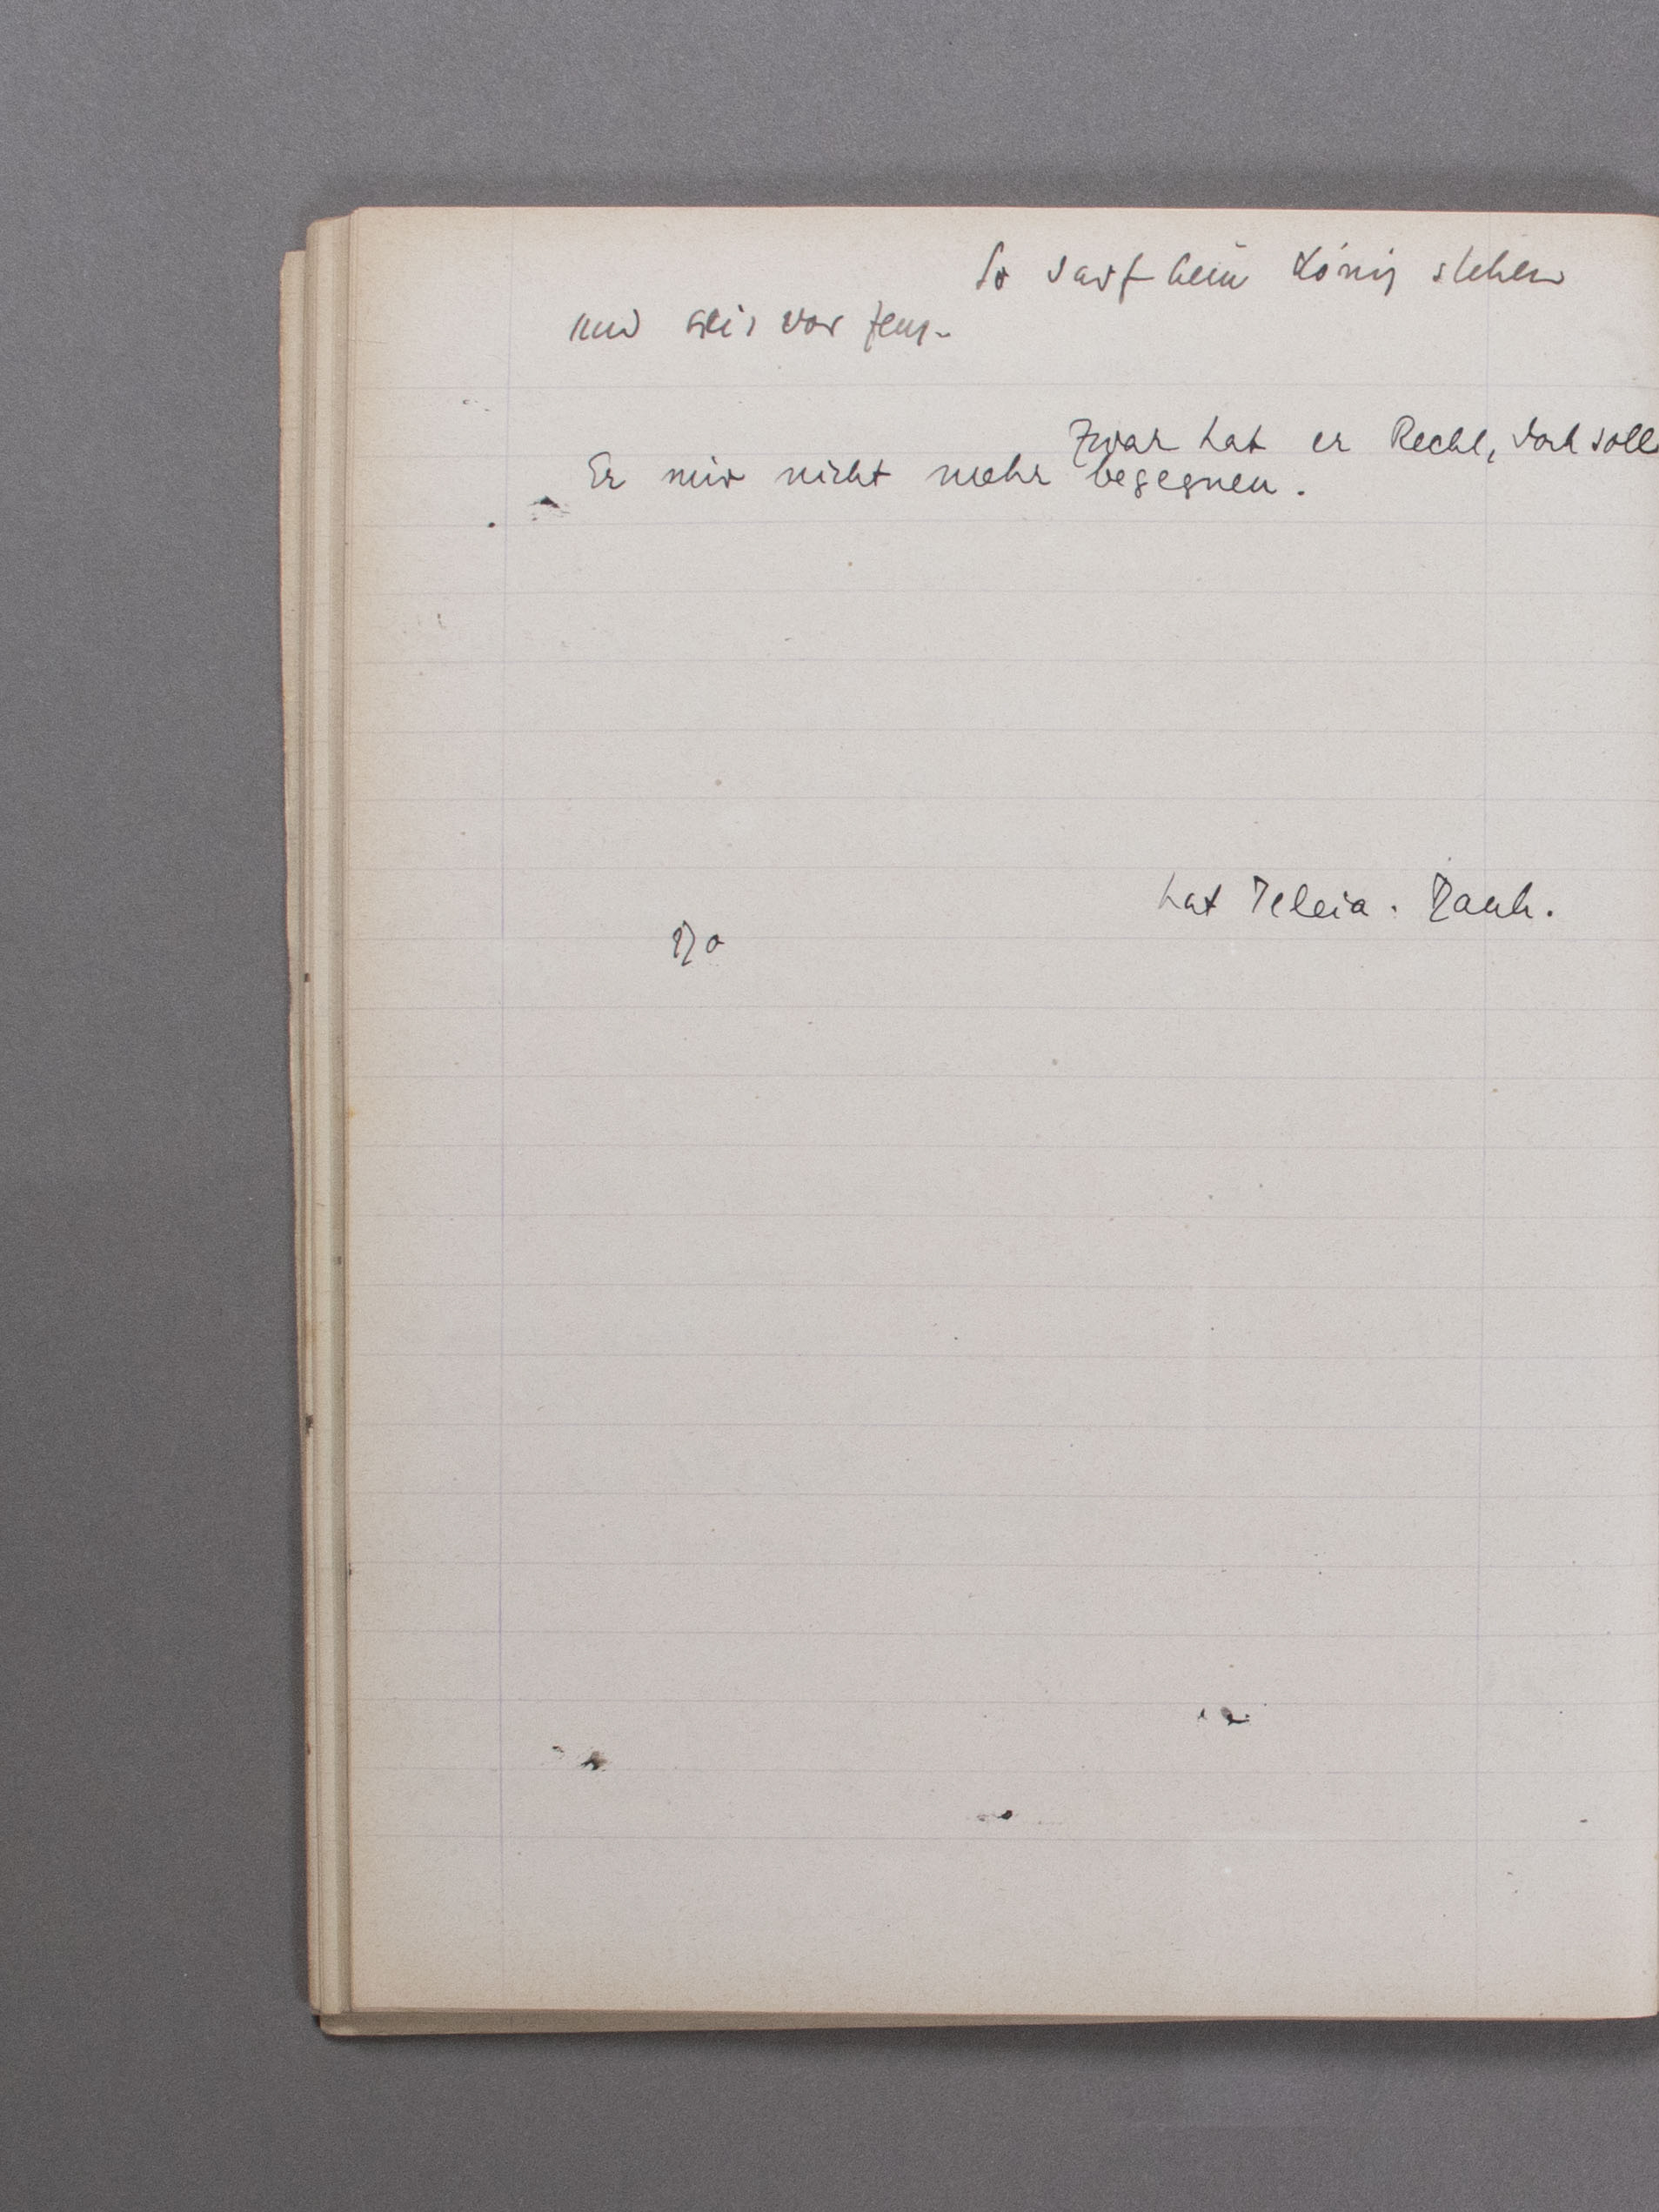 So darf kein König stehen
und sei's vor Zeus.
Zwar hat er Recht, doch soll
Er mir nicht mehr begegnen.
hat Teleia. Dank.